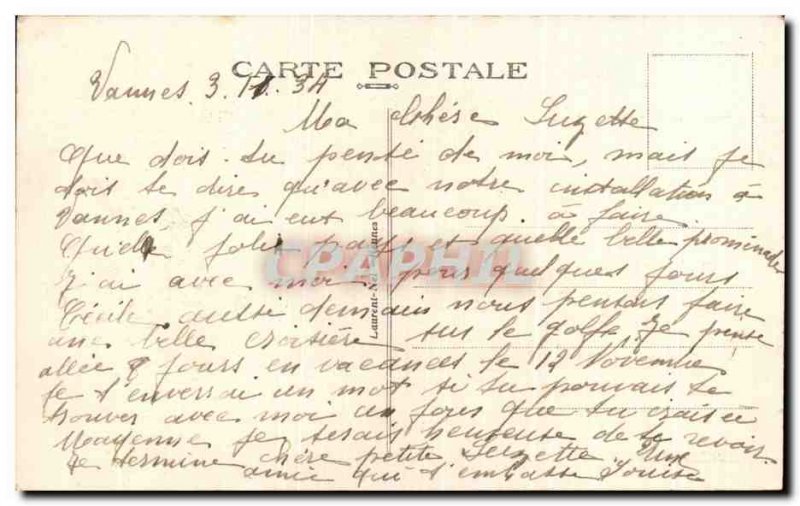 CARTE POSTALE
Vannes. 3. 11. 34
Ma Chère Suzette
Que dois-tu pensé de moi, mais je
dois te dire qu'avec notre installation à
Vannes, j'ai eut beaucoup à faire.
Quelle joli pays et quelle belle promenade
j'ai avec moi pour quelques jours
Cécile aussi demain nous pensons faire
une belle croisière sur le golfe je pense
allée 8 jours en vacances le 12 Novembre
je t'enverrai un mot si tu pouvais te
trouver avec moi un jour que tu
Mayenne je serais heureuse de te revoir.
Je termine chère petite Suzette. Une
amie qui t'embrasse Louise
Laurent-Nel
CPAPHIL